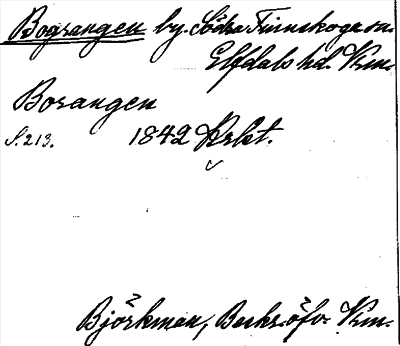 Bograngen by. Södra Finnskoga sn.
Elfdals hd. Vrm.
Borangen
S. 213. 1842 Krkt.
Björkman, Beskr. öfv. Vrm.